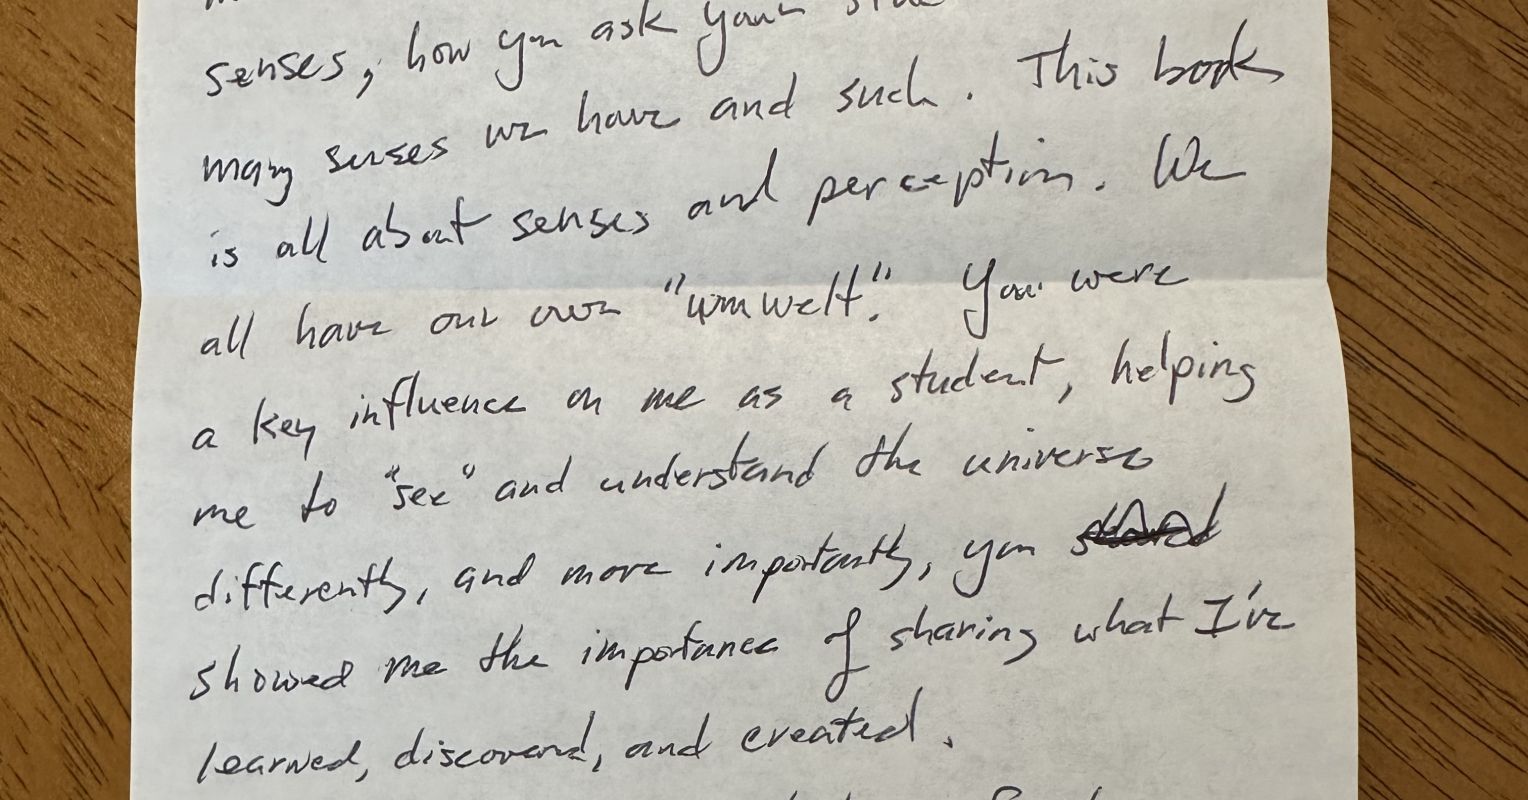 senses, how you ask your
many senses we have and such. This book
is all about senses and perception. We
all have our own "umwelt." You were
a key influence on me as a student, helping
me to "see" and understand the universe
differently, and more importantly, you
showed me the importance of sharing what I've
learned, discovered, and created.